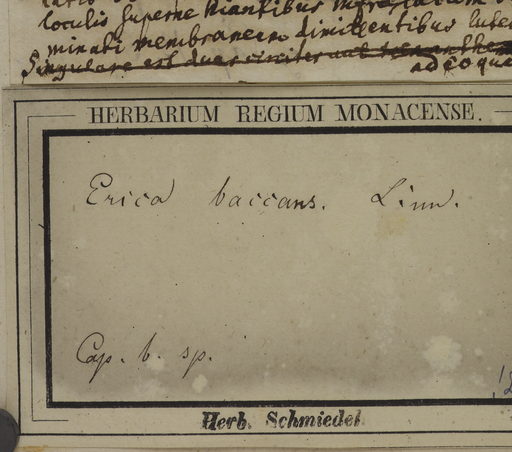 loculis superne hiantibus
minuti membraneem dimidentibus lutei
Singulare est
adeoque
HERBARIUM REGIUM MONACENSE.
Erica baccans. Linn.
Cap. b. sp.
Herb. Schmiedel